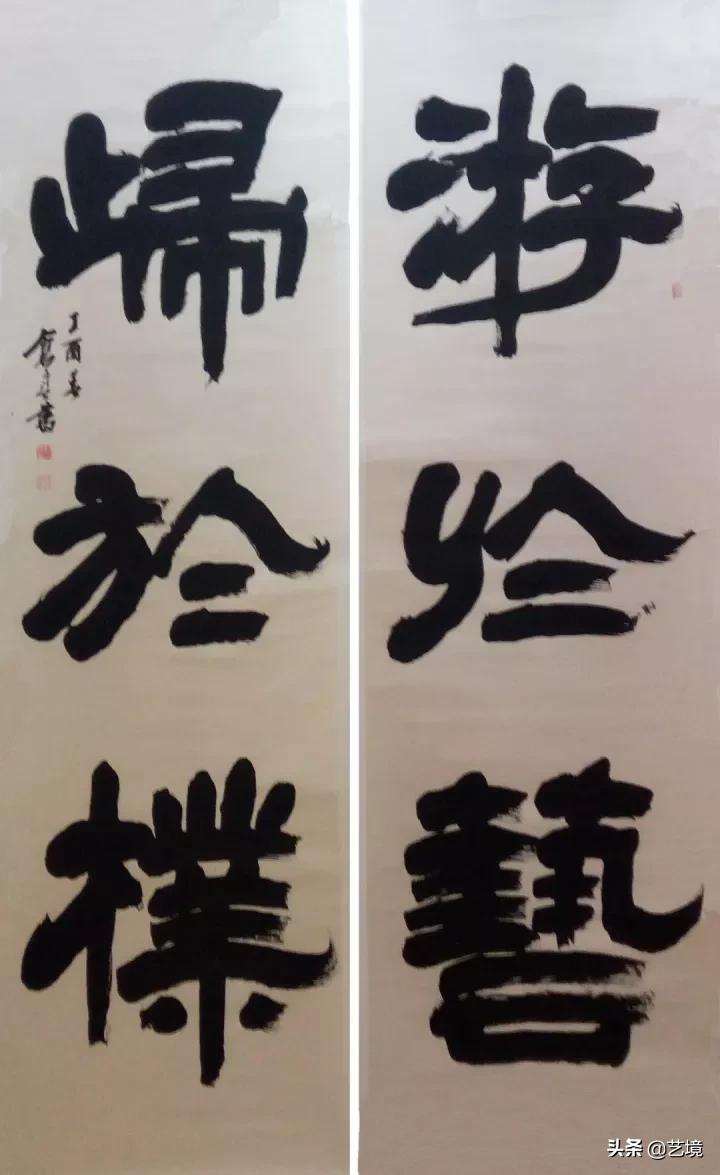 游於藝
歸於樸
丁酉春
書
头条 @艺境